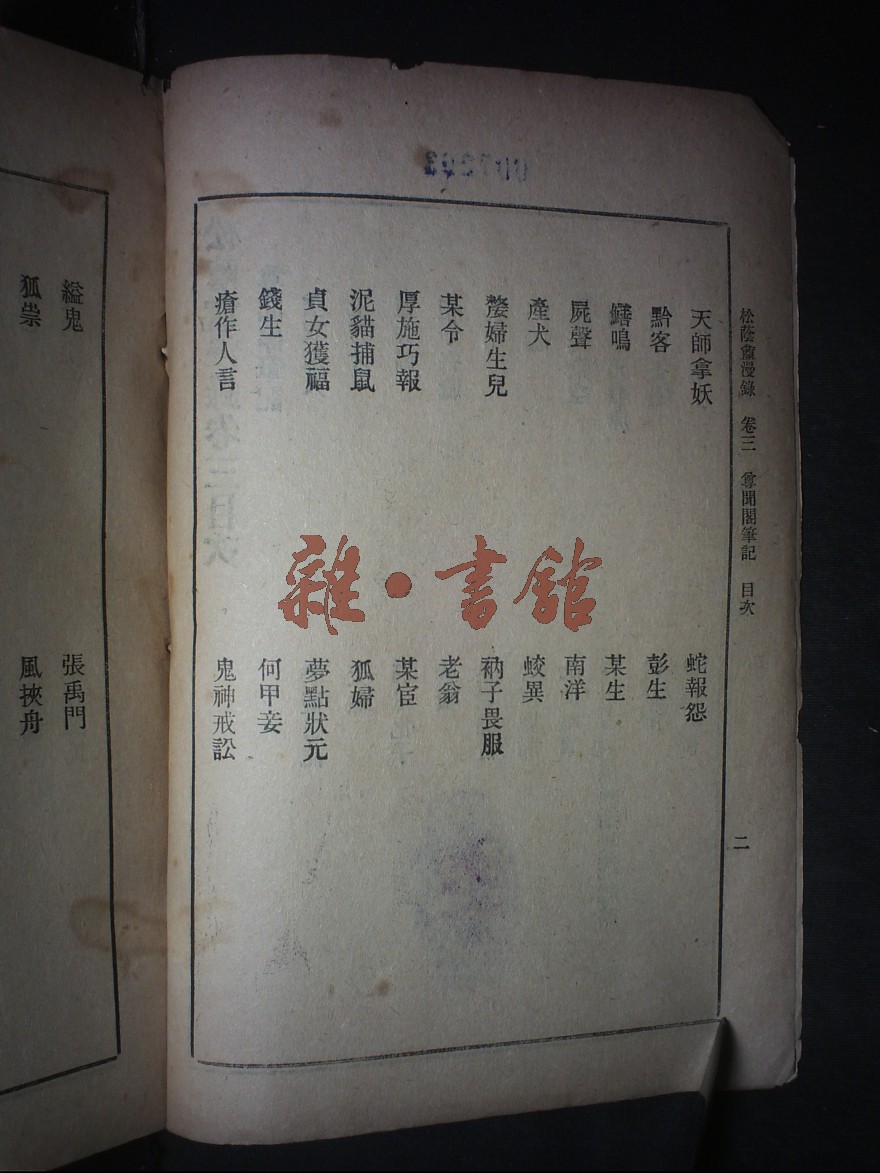 松蔭盦漫錄　卷三　尊聞閣筆記　目次
二
天師拿妖　蛇報怨
黔客　彭生
鱔鳴　某生
屍聲　南洋
產犬　蛟異
嫠婦生兒　衲子畏服
某令　老翁
厚施巧報　某宦
泥貓捕鼠　狐婦
貞女獲福　夢點狀元
錢生　何甲妾
瘡作人言　鬼神戒訟
縊鬼　張禹門
狐祟　風挾舟
雜·書館